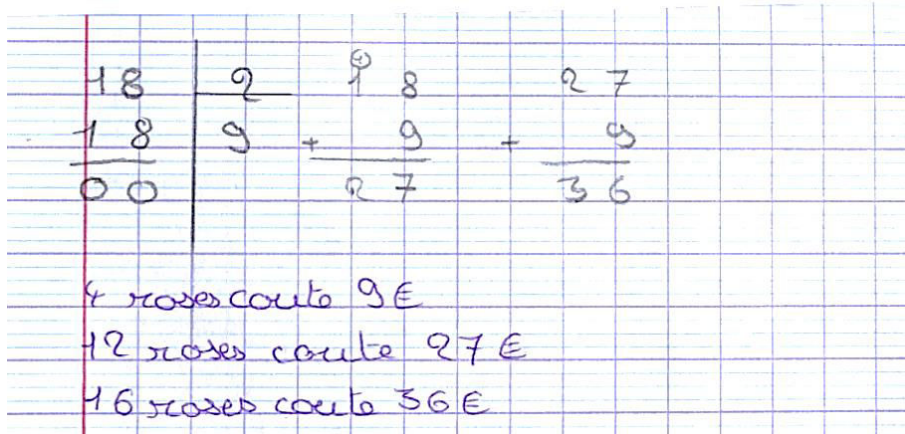 18 2 ① 1 8 2 7
1 8 9 + 9 + 9
0 0 2 7 3 6
4 roses coute 9€
12 roses coute 27€
16 roses coute 36€